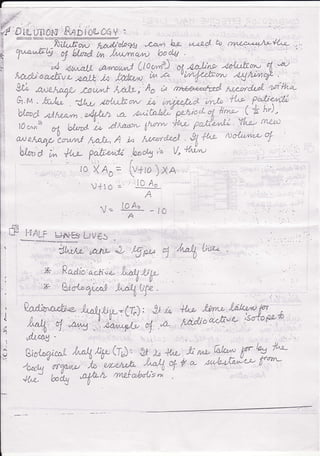 DILUTION RADIOLOGY :
Dilution radiology can be used to measure the
quantity of blood in human body.
A small amount (10cm³) of saline solution of a
radioactive salt is taken in a injection syringe.
It's average count rate, A₀ is measured recorded with a
G.M. tube. The solution is injected into the patient's
blood stream. After a suitable period of time (½ hr),
10 cm³ of blood is drawn from the patient. The new
average count rate, A is recorded. If the volume of
blood in the patient's body is V, then
10 X A₀ = (V+10) X A
V+10 = 10 A₀ / A
V = 10 A₀ / A - 10
HALF LINES LIVES
There are 2 types of half lives.
* Radioactive half life
* Biological half life.
Radioactive half life = (Tr): It is the time taken for
half of any sample of a radioactive isotope to
decay.
Biological half life (Tb): It is the time taken for by the
body organs to excrete half of a substance from
the body after metabolism.